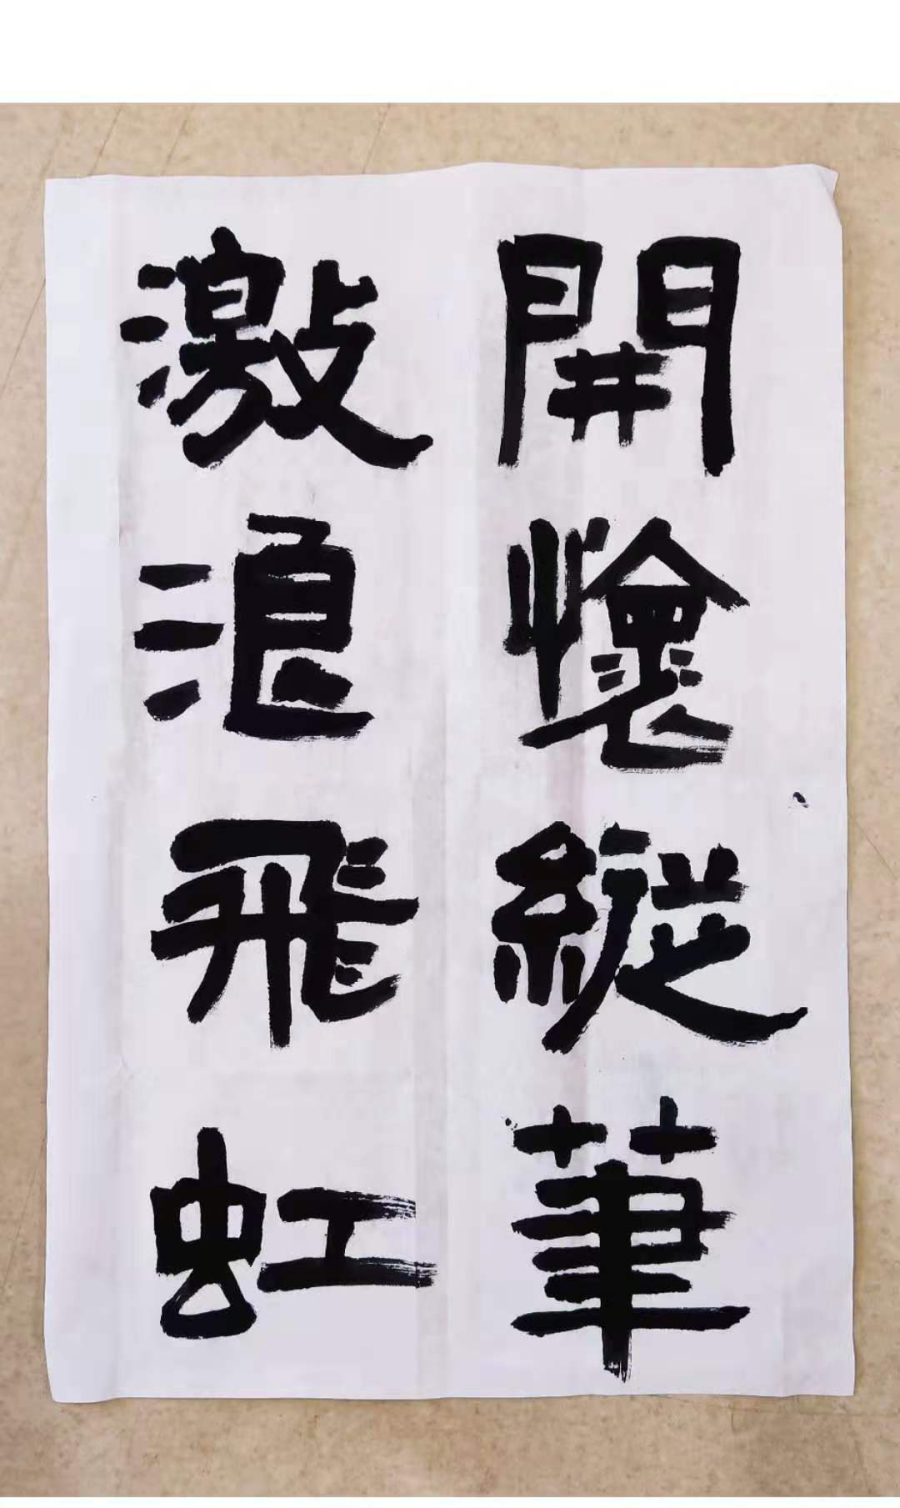 開懷縱筆
激浪飛虹